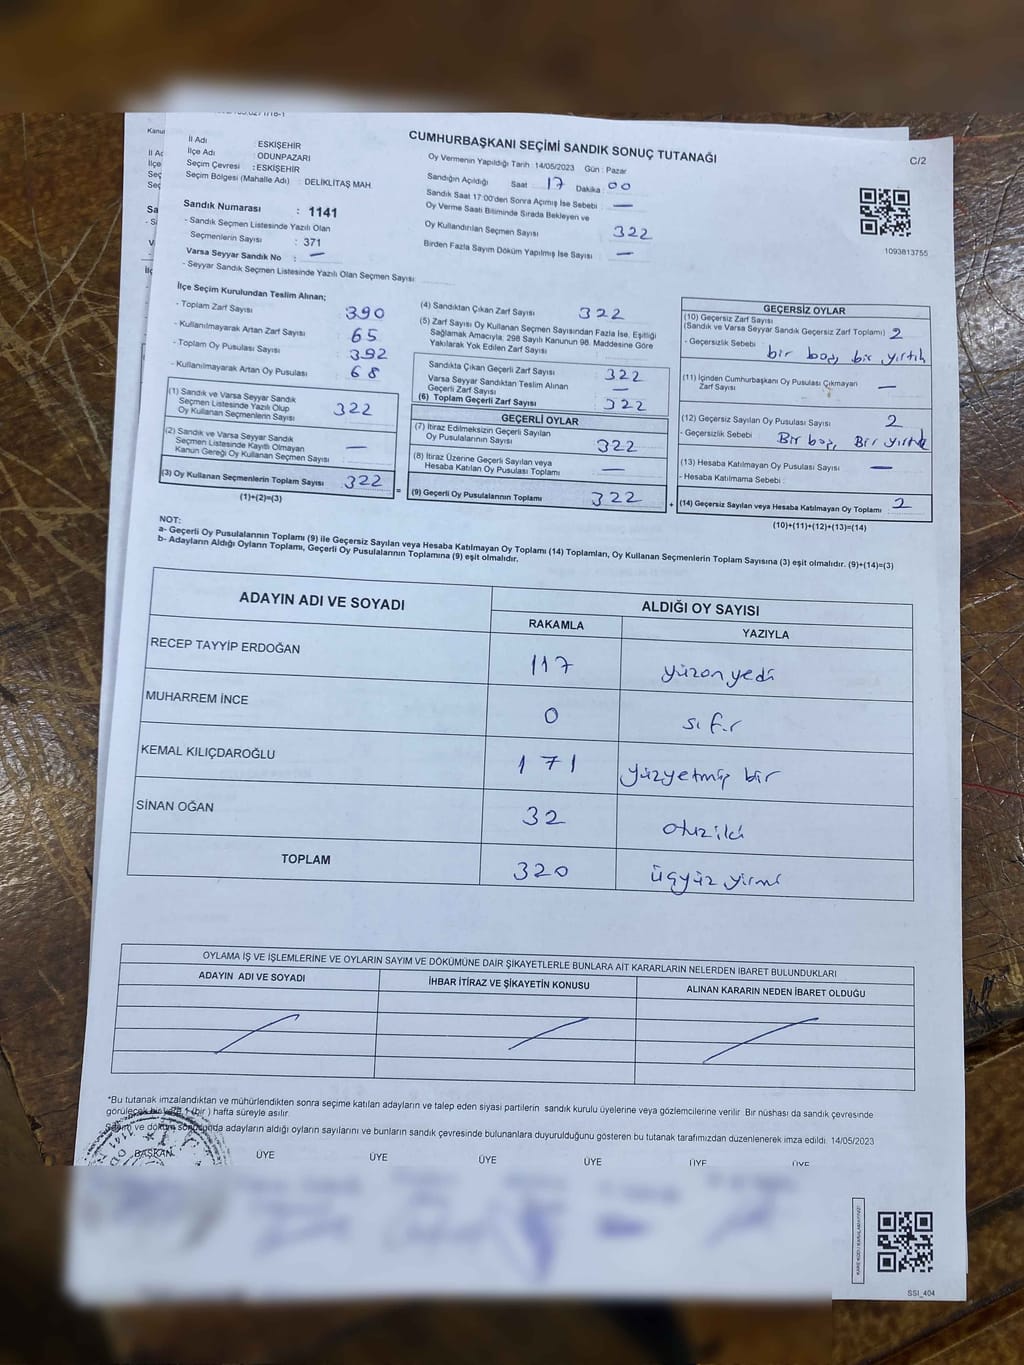 CUMHURBAŞKANI SEÇİMİ SANDIK SONUÇ TUTANAĞI
C/2
İl Adı : ESKİŞEHİR
İlçe Adı : ODUNPAZARI
Seçim Çevresi : ESKİŞEHİR
Seçim Bölgesi (Mahalle Adı) : DELİKLİTAŞ MAH.
Sandık Numarası : 1141
- Sandık Seçmen Listesinde Yazılı Olan
Seçmenlerin Sayısı : 371
Varsa Seyyar Sandık No : —
- Seyyar Sandık Seçmen Listesinde Yazılı Olan Seçmen Sayısı
Oy Vermenin Yapıldığı Tarih : 14/05/2023 Gün : Pazar
Sandığın Açıldığı Saat 17 Dakika 00
Sandık Saat 17:00'den Sonra Açımış İse Sebebi —
Oy Verme Saati Bitiminde Sırada Bekleyen ve
Oy Kullandırılan Seçmen Sayısı 322
Birden Fazla Sayım Döküm Yapılmış İse Sayısı —
1093813755
İlçe Seçim Kurulundan Teslim Alınan;
- Toplam Zarf Sayısı 390
- Kullanılmayarak Artan Zarf Sayısı 65
- Toplam Oy Pusulası Sayısı 392
- Kullanılmayarak Artan Oy Pusulası 68
(1) Sandık ve Varsa Seyyar Sandık
Seçmen Listesinde Yazılı Olup
Oy Kullanan Seçmenlerin Sayısı 322
(2) Sandık ve Varsa Seyyar Sandık
Seçmen Listesinde Kayıtlı Olmayan
Kanun Gereği Oy Kullanan Seçmen Sayısı —
(3) Oy Kullanan Seçmenlerin Toplam Sayısı 322
(1)+(2)=(3)
(4) Sandıktan Çıkan Zarf Sayısı 322
(5) Zarf Sayısı Oy Kullanan Seçmen Sayısından Fazla İse, Eşitliği
Sağlamak Amacıyla; 298 Sayılı Kanunun 98. Maddesine Göre
Yakılarak Yok Edilen Zarf Sayısı
Sandıkta Çıkan Geçerli Zarf Sayısı 322
Varsa Seyyar Sandıktan Teslim Alınan
Geçerli Zarf Sayısı —
(6) Toplam Geçerli Zarf Sayısı 322
GEÇERLİ OYLAR
(7) İtiraz Edilmeksizin Geçerli Sayılan
Oy Pusulalarının Sayısı 322
(8) İtiraz Üzerine Geçerli Sayılan veya
Hesaba Katılan Oy Pusulası Toplamı —
= (9) Geçerli Oy Pusulalarının Toplamı 322
GEÇERSİZ OYLAR
(10) Geçersiz Zarf Sayısı
(Sandık ve Varsa Seyyar Sandık Geçersiz Zarf Toplamı) 2
- Geçersizlik Sebebi : bir boş, bir yırtık
(11) İçinden Cumhurbaşkanı Oy Pusulası Çıkmayan
Zarf Sayısı —
(12) Geçersiz Sayılan Oy Pusulası Sayısı 2
- Geçersizlik Sebebi : Bir boş, Bir yırtık
(13) Hesaba Katılmayan Oy Pusulası Sayısı —
- Hesaba Katılmama Sebebi :
+ (14) Geçersiz Sayılan veya Hesaba Katılmayan Oy Toplamı 2
(10)+(11)+(12)+(13)=(14)
NOT:
a- Geçerli Oy Pusulalarının Toplamı (9) ile Geçersiz Sayılan veya Hesaba Katılmayan Oy Toplamı (14) Toplamları, Oy Kullanan Seçmenlerin Toplam Sayısına (3) eşit olmalıdır. (9)+(14)=(3)
b- Adayların Aldığı Oyların Toplamı, Geçerli Oy Pusulalarının Toplamına (9) eşit olmalıdır.
ADAYIN ADI VE SOYADI ALDIĞI OY SAYISI
RAKAMLA YAZIYLA
RECEP TAYYİP ERDOĞAN 117 yüzonyedi
MUHARREM İNCE 0 sıfır
KEMAL KILIÇDAROĞLU 171 yüzyetmiş bir
SİNAN OĞAN 32 otuziki
TOPLAM 320 üçyüz yirmi
OYLAMA İŞ VE İŞLEMLERİNE VE OYLARIN SAYIM VE DÖKÜMÜNE DAİR ŞİKAYETLERLE BUNLARA AİT KARARLARIN NELERDEN İBARET BULUNDUKLARI
ADAYIN ADI VE SOYADI İHBAR İTİRAZ VE ŞİKAYETİN KONUSU ALINAN KARARIN NEDEN İBARET OLDUĞU
*Bu tutanak imzalandıktan ve mühürlendikten sonra seçime katılan adayların ve talep eden siyasi partilerin sandık kurulu üyelerine veya gözlemcilerine verilir. Bir nüshası da sandık çevresinde
görülecek bir 1 (bir) hafta süreyle asılır.
Sayım ve döküm sonucunda adayların aldığı oyların sayılarını ve bunların sandık çevresinde bulunanlara duyurulduğunu gösteren bu tutanak tarafımızdan düzenlenerek imza edildi. 14/05/2023
BAŞKAN ÜYE ÜYE ÜYE ÜYE ÜYE ÜYE
SSI_404